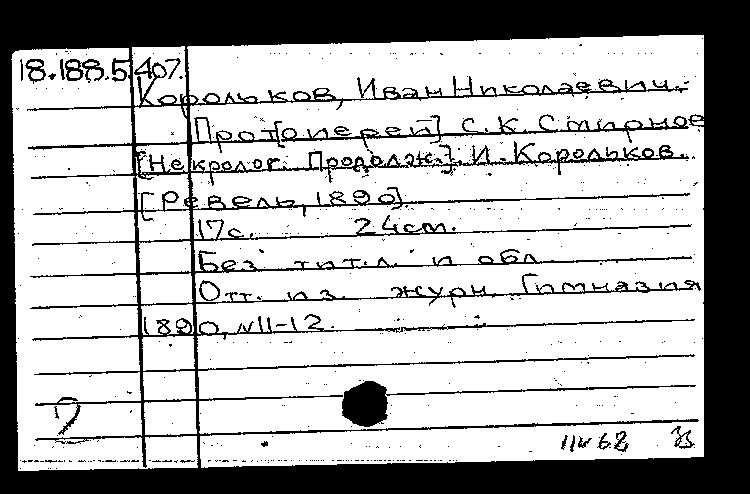 18.188.5.407.
Корольков, Иван Николаевич.
Прот[оиереи] С. К. Смирнов
[Некролог. Продолж.]. И. Корольков.
[Ревель, 1890].
17с. 24см.
Без тит. л. и обл
Отт. из журн. Гимназия
1890, №11-12.
2
68